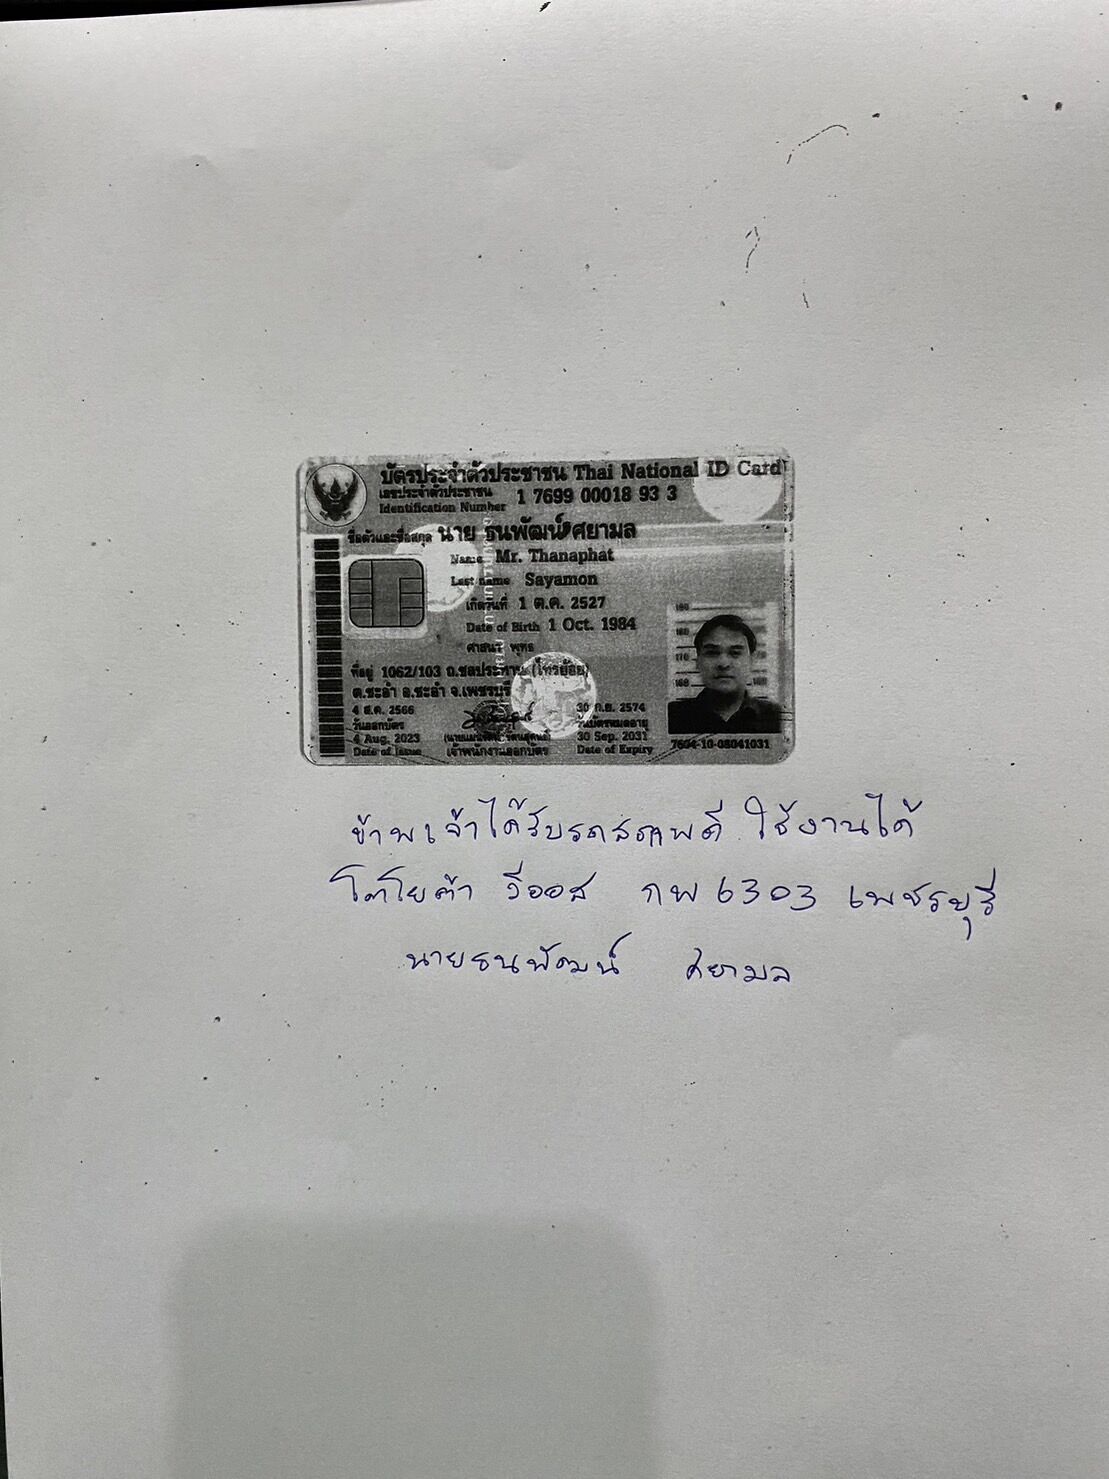 บัตรประจำตัวประชาชน Thai National ID Card
เลขประจำตัวประชาชน 1 7699 00018 93 3
Identification Number
ชื่อตัวและชื่อสกุล นาย ธนพัฒน์ ศยามล
Name Mr. Thanaphat
Last name Sayamon
เกิดวันที่ 1 ต.ค. 2527
Date of Birth 1 Oct. 1984
ศาสนา พุทธ
ที่อยู่ 1062/103 ถ.ชลประทาน (ไทรย้อย)
ต.ชะอำ อ.ชะอำ จ.เพชรบุรี
4 ส.ค. 2566
วันออกบัตร
4 Aug. 2023
Date of Issue
เจ้าพนักงานออกบัตร
30 ก.ย. 2574
วันบัตรหมดอายุ
30 Sep. 2031
Date of Expiry
7604-10-08041031
ข้าพเจ้าได้รับรถสภาพดี ใช้งานได้
โตโยต้า วีออส กพ 6303 เพชรบุรี
นายธนพัฒน์ ศยามล